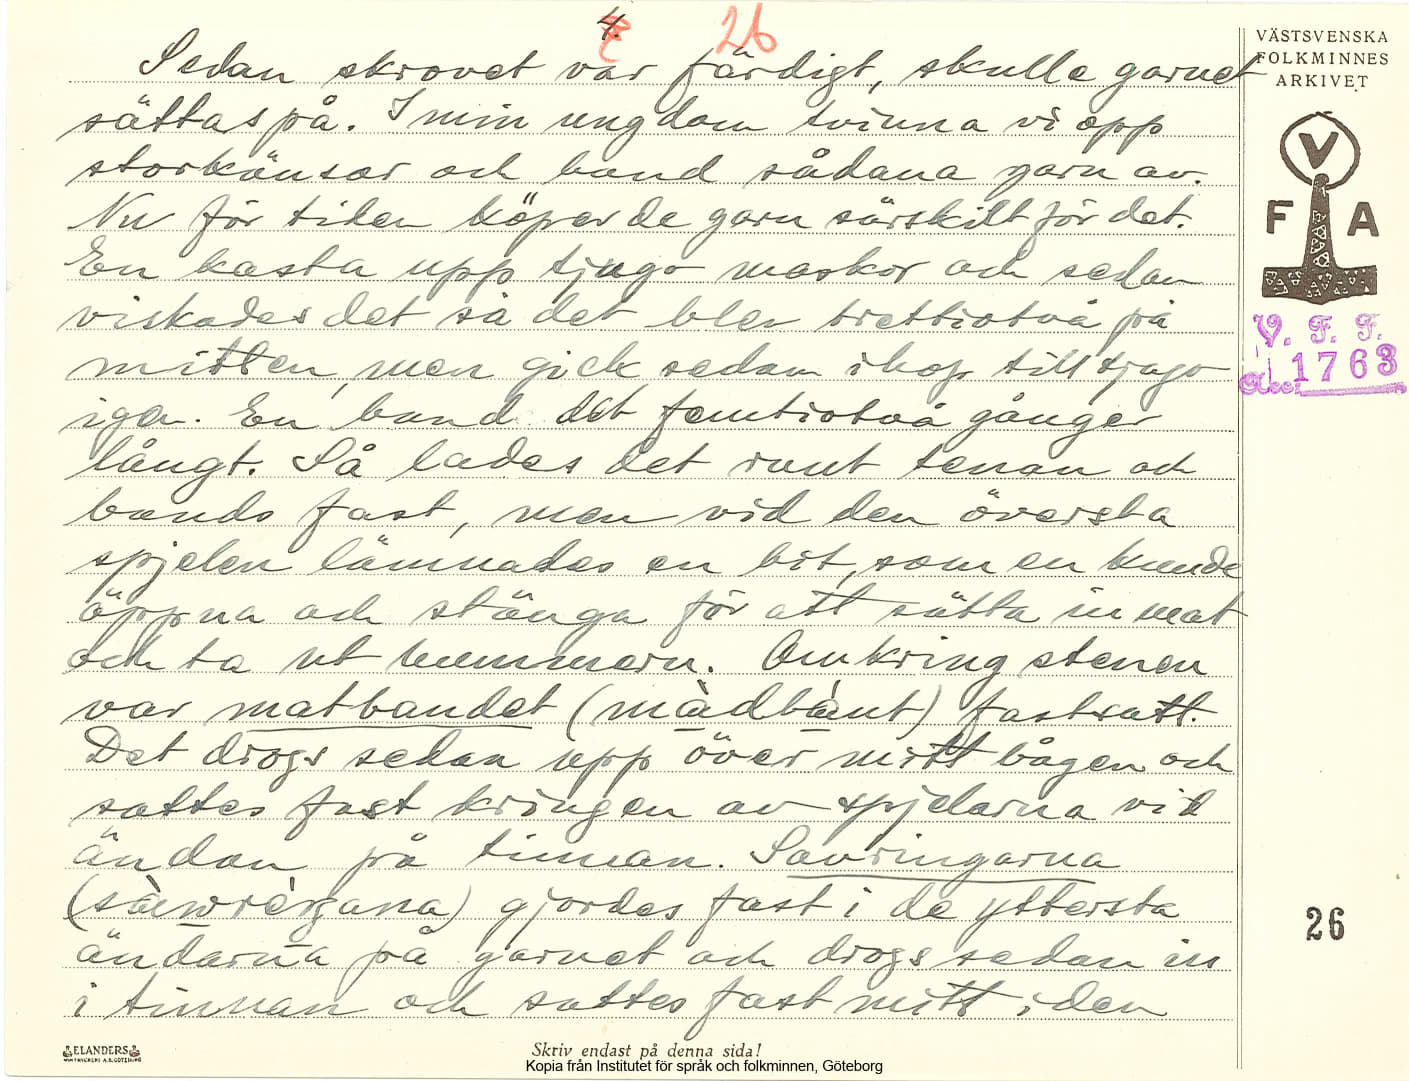 4.
26
VÄSTSVENSKA
FOLKMINNES
ARKIVET
V
F A
V. F. F.
1763
Sedan skrovet var färdigt, skulle garnet
sättas på. I min ungdom tvinna vi opp
och band sådana garn av.
Nu för tiden köper de garn särskilt för det.
En kasta upp tjugo maskor och sedan
viskades det så det blev trettiotvå på
mitten, men gick sedan ihop till tjugo
igen. En band det femtiotvå gånger
långt. Så lades det runt tenan och
bands fast, men vid den översta
spjelen lämnades en bit, som en kunde
öppna och stänga för att sätta in mat
och ta ut hummern. Omkring stenen
var matbandet (màdbánt) fastsatt.
Det drogs sedan upp över mittbågen och
sattes fast kringen av spjelarna vid
ändan på tinnan. Savringarna
gjordes fast i de yttersta
ändarna på garnet och drogs sedan in
i tinnan och sattes fast mitt i den
26
ELANDERS
Skriv endast på denna sida!
Kopia från Institutet för språk och folkminnen, Göteborg